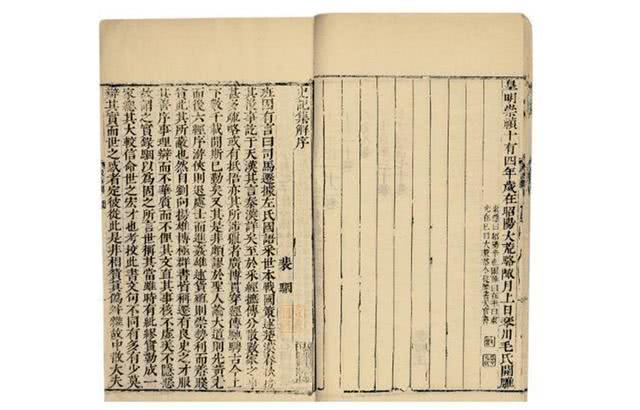 皇明崇禎十有四年歲在昭陽大荒駱陬月上日琴川毛氏開雕
史記集解序
裴駰
班固有言曰司馬遷據左氏國語采世本戰國策述楚漢春秋接
其後事訖于天漢其言秦漢詳矣至於采經摭傳分散數家之事
甚多疏略或有抵捂亦其所涉獵者廣博貫穿經傳馳騁古今上
下數千載間斯已勤矣又其是非頗謬於聖人論大道則先黃老
而後六經序游俠則退處士而進姦雄述貨殖則崇勢利而羞賤
貧此其所蔽也然自劉向揚雄博極群書皆稱遷有良史之才服
其善序事理辯而不華質而不俚其文直其事核不虛美不隱惡
故謂之實錄駰以為固之所言世稱其當雖時有紕繆實勒成一
家總其大較信命世之宏才也考按此書文句不同有多有少莫
辯其實而世之惑者定彼從此是非相貿真偽舛雜故中散大夫